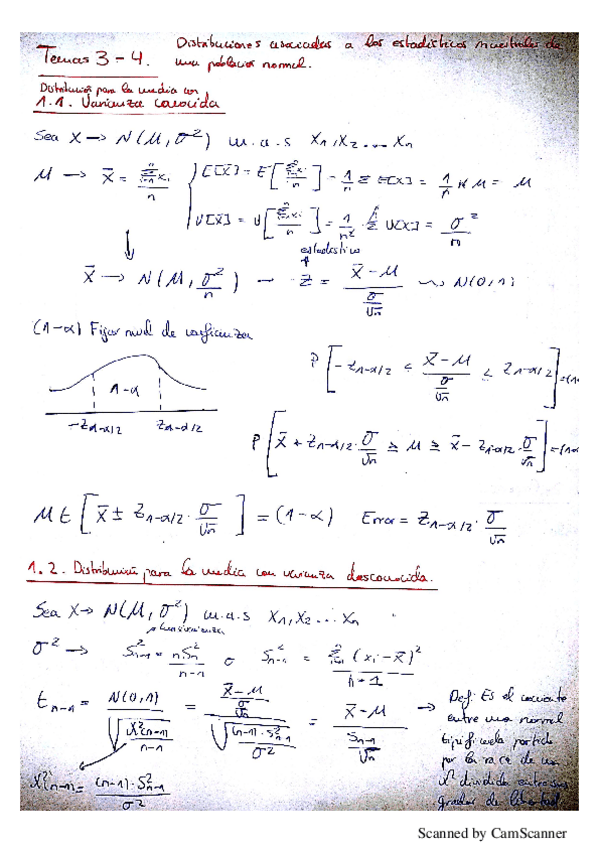 Temas 3-4. Distribuciones asociadas a los estadísticos muestrales de
una población normal.
Distribución para la media con
1.1. Varianza conocida
Sea X → N(M, σ²) m.a.s X₁, X₂ ... Xₙ
M → X̄ = Σᵢ₌₁ⁿ xᵢ / n
E[X̄] = E[Σᵢ₌₁ⁿ xᵢ / n] = 1/n Σ E[X] = 1/n n M = M
V[X̄] = V[Σᵢ₌₁ⁿ xᵢ / n] = 1/n² · Σ V[X] = σ²/n
estadístico
X̄ → N(M, σ²/n) → Z = (X̄ - M) / (σ/√n) ~> N(0,1)
(1-α) Fijar nivel de confianza
1-α
-Z1-α/2 Z1-α/2
P[-Z1-α/2 ≤ (X̄ - M) / (σ/√n) ≤ Z1-α/2] = (1-α
P[X̄ + Z1-α/2 · σ/√n ≥ M ≥ X̄ - Z1-α/2 · σ/√n] = (1-α
M ∈ [X̄ ± Z1-α/2 · σ/√n] = (1-α) Error = Z1-α/2 · σ/√n
1.2. Distribución para la media con varianza desconocida.
Sea X → N(M, σ²) m.a.s X₁, X₂ ... Xₙ
σ² → S²n-1 = nS²n / n-1 o S²n-1 = Σᵢ₌₁ⁿ (xᵢ - X̄)² / n-1
tn-1 = N(0,1) / √(X²(n-1) / n-1) = ((X̄ - M) / (σ/√n)) / √((n-1)·S²n-1 / σ²) = (X̄ - M) / (Sn-1/√n) →
X²(n-1) = (n-1)·S²n-1 / σ²
Def: Es el cociente
entre una normal
tipificada partido
por la raíz de una
X² dividida entre sus
grados de libertad.
Scanned by CamScanner